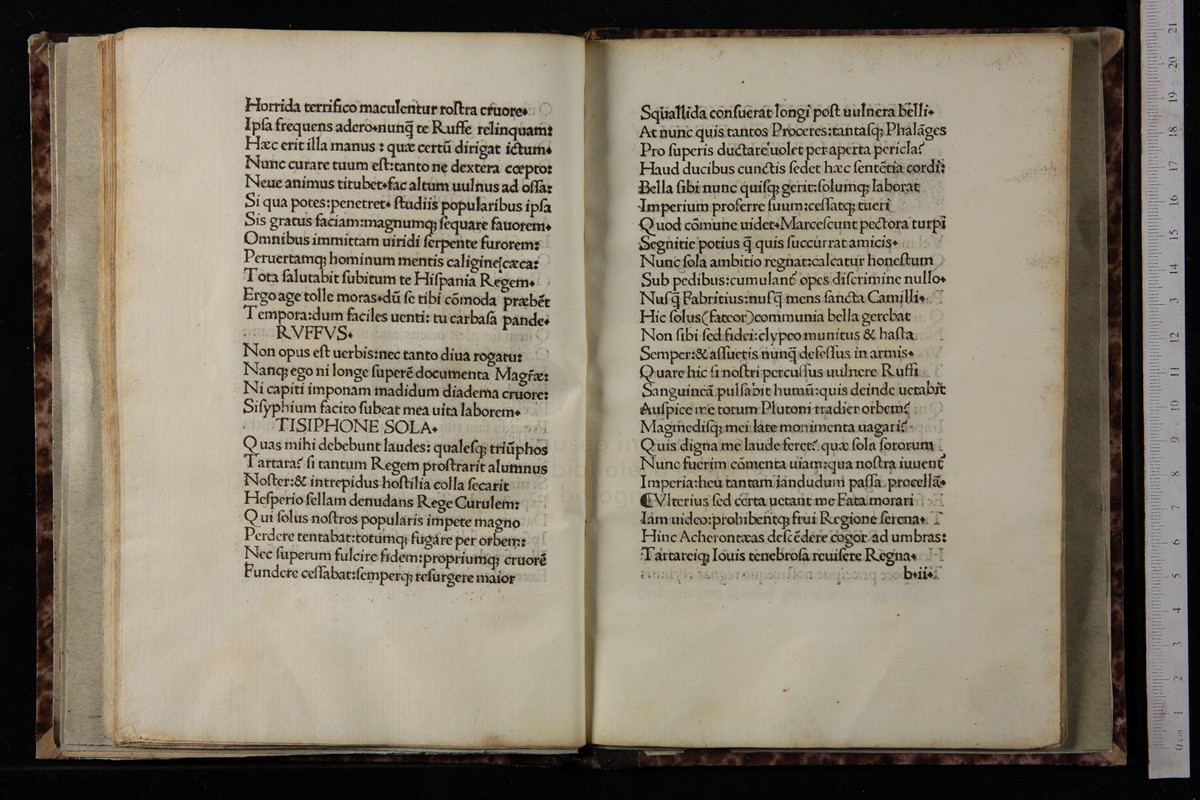 Horrida terrifico maculentur rostra cruore.
Ipsa frequens adero.nunq̃ te Ruffe relinquam:
Hæc erit illa manus : quæ certũ dirigat ictum.
Nunc curare tuum est:tanto ne dextera cœpto:
Neue animus titubet.fac altum uulnus ad ossa:
Si qua potes:penetret. studiis popularibus ipsa
Sis gratus faciam:magnumq; sequare fauorem.
Omnibus immittam uiridi serpente furorem:
Peruertamq; hominum mentis caligine cæca:
Tota salutabit subitum te Hispania Regem.
Ergo age tolle moras.dũ se tibi cõmoda præbẽt
Tempora:dum faciles uenti: tu carbasa pande.
RVFFVS.
Non opus est uerbis:nec tanto diua rogatu:
Nanq; ego ni longe superẽ documenta Magr̃æ:
Ni capiti imponam madidum diadema cruore:
Sisyphium facito subeat mea uita laborem.
TISIPHONE SOLA.
Quas mihi debebunt laudes: qualesq; triũphos
Tartara? si tantum Regem prostrarit alumnus
Noster:& intrepidus hostilia colla secarit
Hesperio sellam denudans Rege Curulem:
Qui solus nostros popularis impete magno
Perdere tentabat:totumq; fugare per orbem:
Nec superum fulcire fidem:propriumq; cruorẽ
Fundere cessabat:semperq; resurgere maior
Squallida consuerat longi post uulnera belli.
At nunc quis tantos Proceres:tantasq; Phalãges
Pro superis ductare uolet per aperta pericla?
Haud ducibus cunctis sedet hæc sentẽtia cordi:
Bella sibi nunc quisq; gerit:solumq; laborat
Imperium proferre suum:cessatq; tueri
Quod cõmune uidet.Marcescunt pectora turpi
Segnitie potius q̃ quis succurrat amicis.
Nunc sola ambitio regnat:calcatur honestum
Sub pedibus:cumulant̃ opes discrimine nullo.
Nusq̃ Fabritius:nusq̃ mens sancta Camilli.
Hic solus(fateor)communia bella gerebat
Non sibi sed fidei:clypeo munitus & hasta
Semper:& assuetis nunq̃ defessus in armis.
Quare hic si nostri percussus uulnere Ruffi
Sanguineã pulsabit humũ:quis deinde uetabit
Auspice me totum Plutoni tradier orbem?
Magmedisq; mei late monimenta uagari?
Quis digna me laude feret? quæ sola sororum
Nunc fuerim cõmenta uiam:qua nostra iuuent̃
Imperia:heu tantam iandudum passa procellã.
¶Vlterius sed certa uetant me Fata morari
Iam uideo:prohibentq; frui Regione serena.
Hinc Acherontæas descẽdere cogor ad umbras:
Tartareiq; Iouis tenebrosa reuisere Regna.
b.ii.